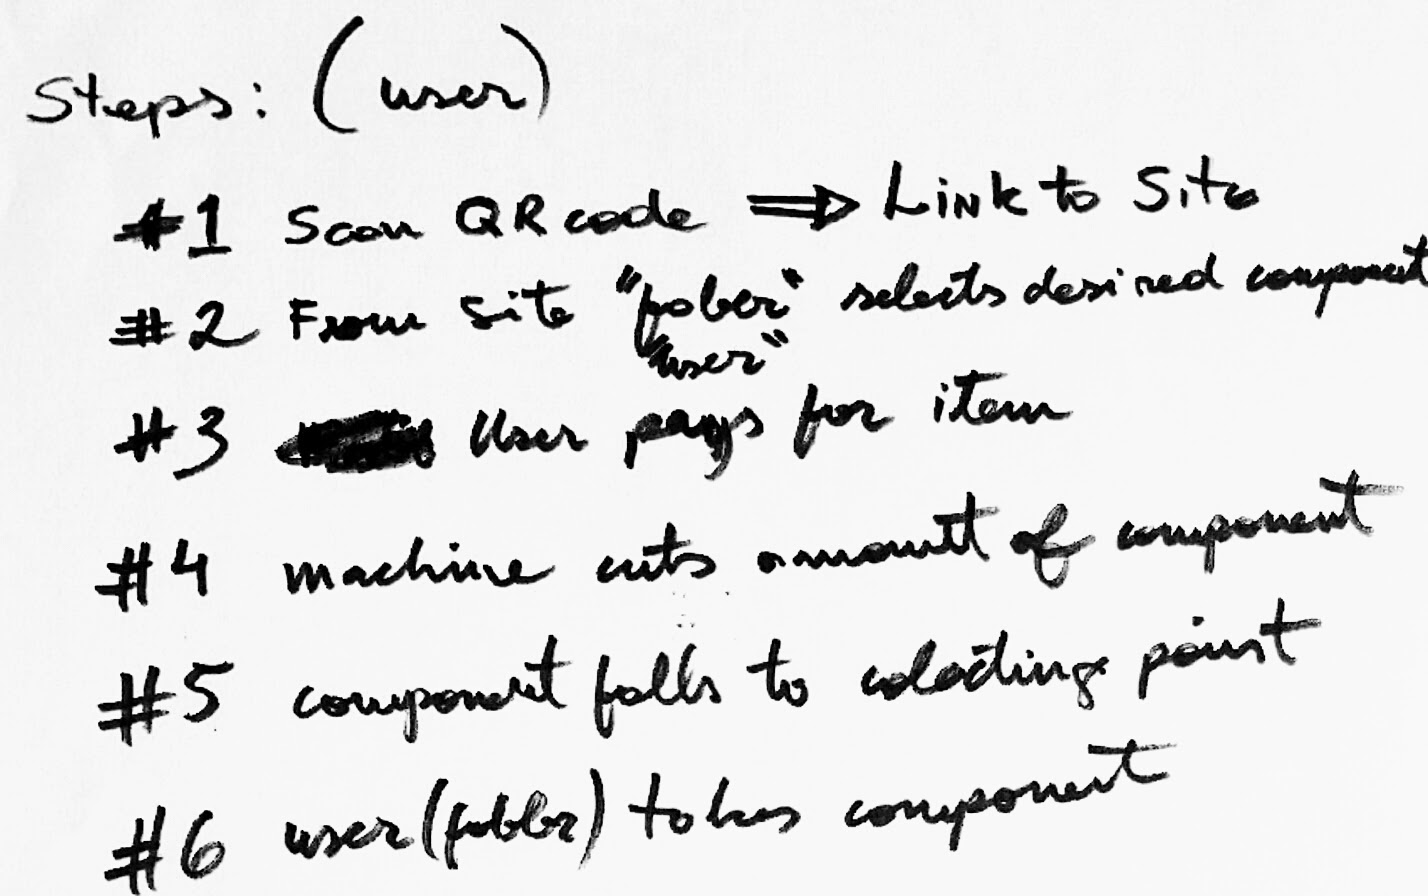 Steps: (user)
#1 Scan QR code ⇒ Link to Site
#2 From Site "fober" selects desired component
"user"
#3 User pays for item
#4 machine cuts amount of component
#5 component falls to colecting point
#6 user (fobber) takes component